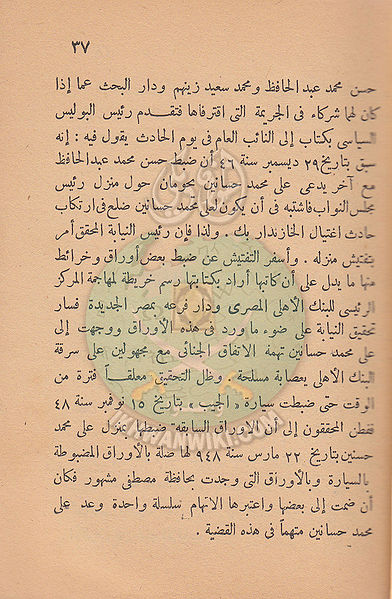 ٣٧
حسن محمد عبد الحافظ ومحمد سعيد زينهم ودار البحث عما إذا
كان لهما شركاء فى الجريمة التى اقترفاها فتقدم رئيس البوليس
السياسى بكتاب إلى النائب العام فى يوم الحادث يقول فيه : إنه
سبق بتاريخ ٢٩ ديسمبر سنة ٤٦ أن ضبط حسن محمد عبد الحافظ
مع آخر يدعى على محمد حسانين يحومان حول منزل رئيس
مجلس النواب فاشتبه فى أن يكون لعلى محمد حسانين ضلع فى ارتكاب
حادث اغتيال الخازندار بك . ولذا فإن رئيس النيابة المحقق أمر
بتفتيش منزله . وأسفر التفتيش عن ضبط بعض أوراق وخرائط
منها ما يدل على أن كاتبها أراد بكتابتها رسم خريطة لمهاجمة المركز
الرئيسى للبنك الأهلى المصرى ودار فرعه بمصر الجديدة فسار
تحقيق النيابة على ضوء ما ورد فى هذه الأوراق ووجهت إلى
على محمد حسانين تهمة الاتفاق الجنائى مع مجهولين على سرقة
البنك الأهلى بعصابة مسلحة . وظل التحقيق معلقاً فترة من
الوقت حتى ضبطت سيارة « الجيب » بتاريخ ١٥ نوفمبر سنة ٤٨
ففطن المحققون إلى أن الأوراق السابقة ضبطها بمنزل على محمد
حسنين بتاريخ ٢٢ مارس سنة ٩٤٨ لها صلة بالأوراق المضبوطة
بالسيارة وبالأوراق التى وجدت بحافظة مصطفى مشهور فكان
أن ضمت إلى بعضها واعتبرها الاتهام سلسلة واحدة وعد على
محمد حسانين متهماً فى هذه القضية .
WWW.IKHWANWIKI.COM